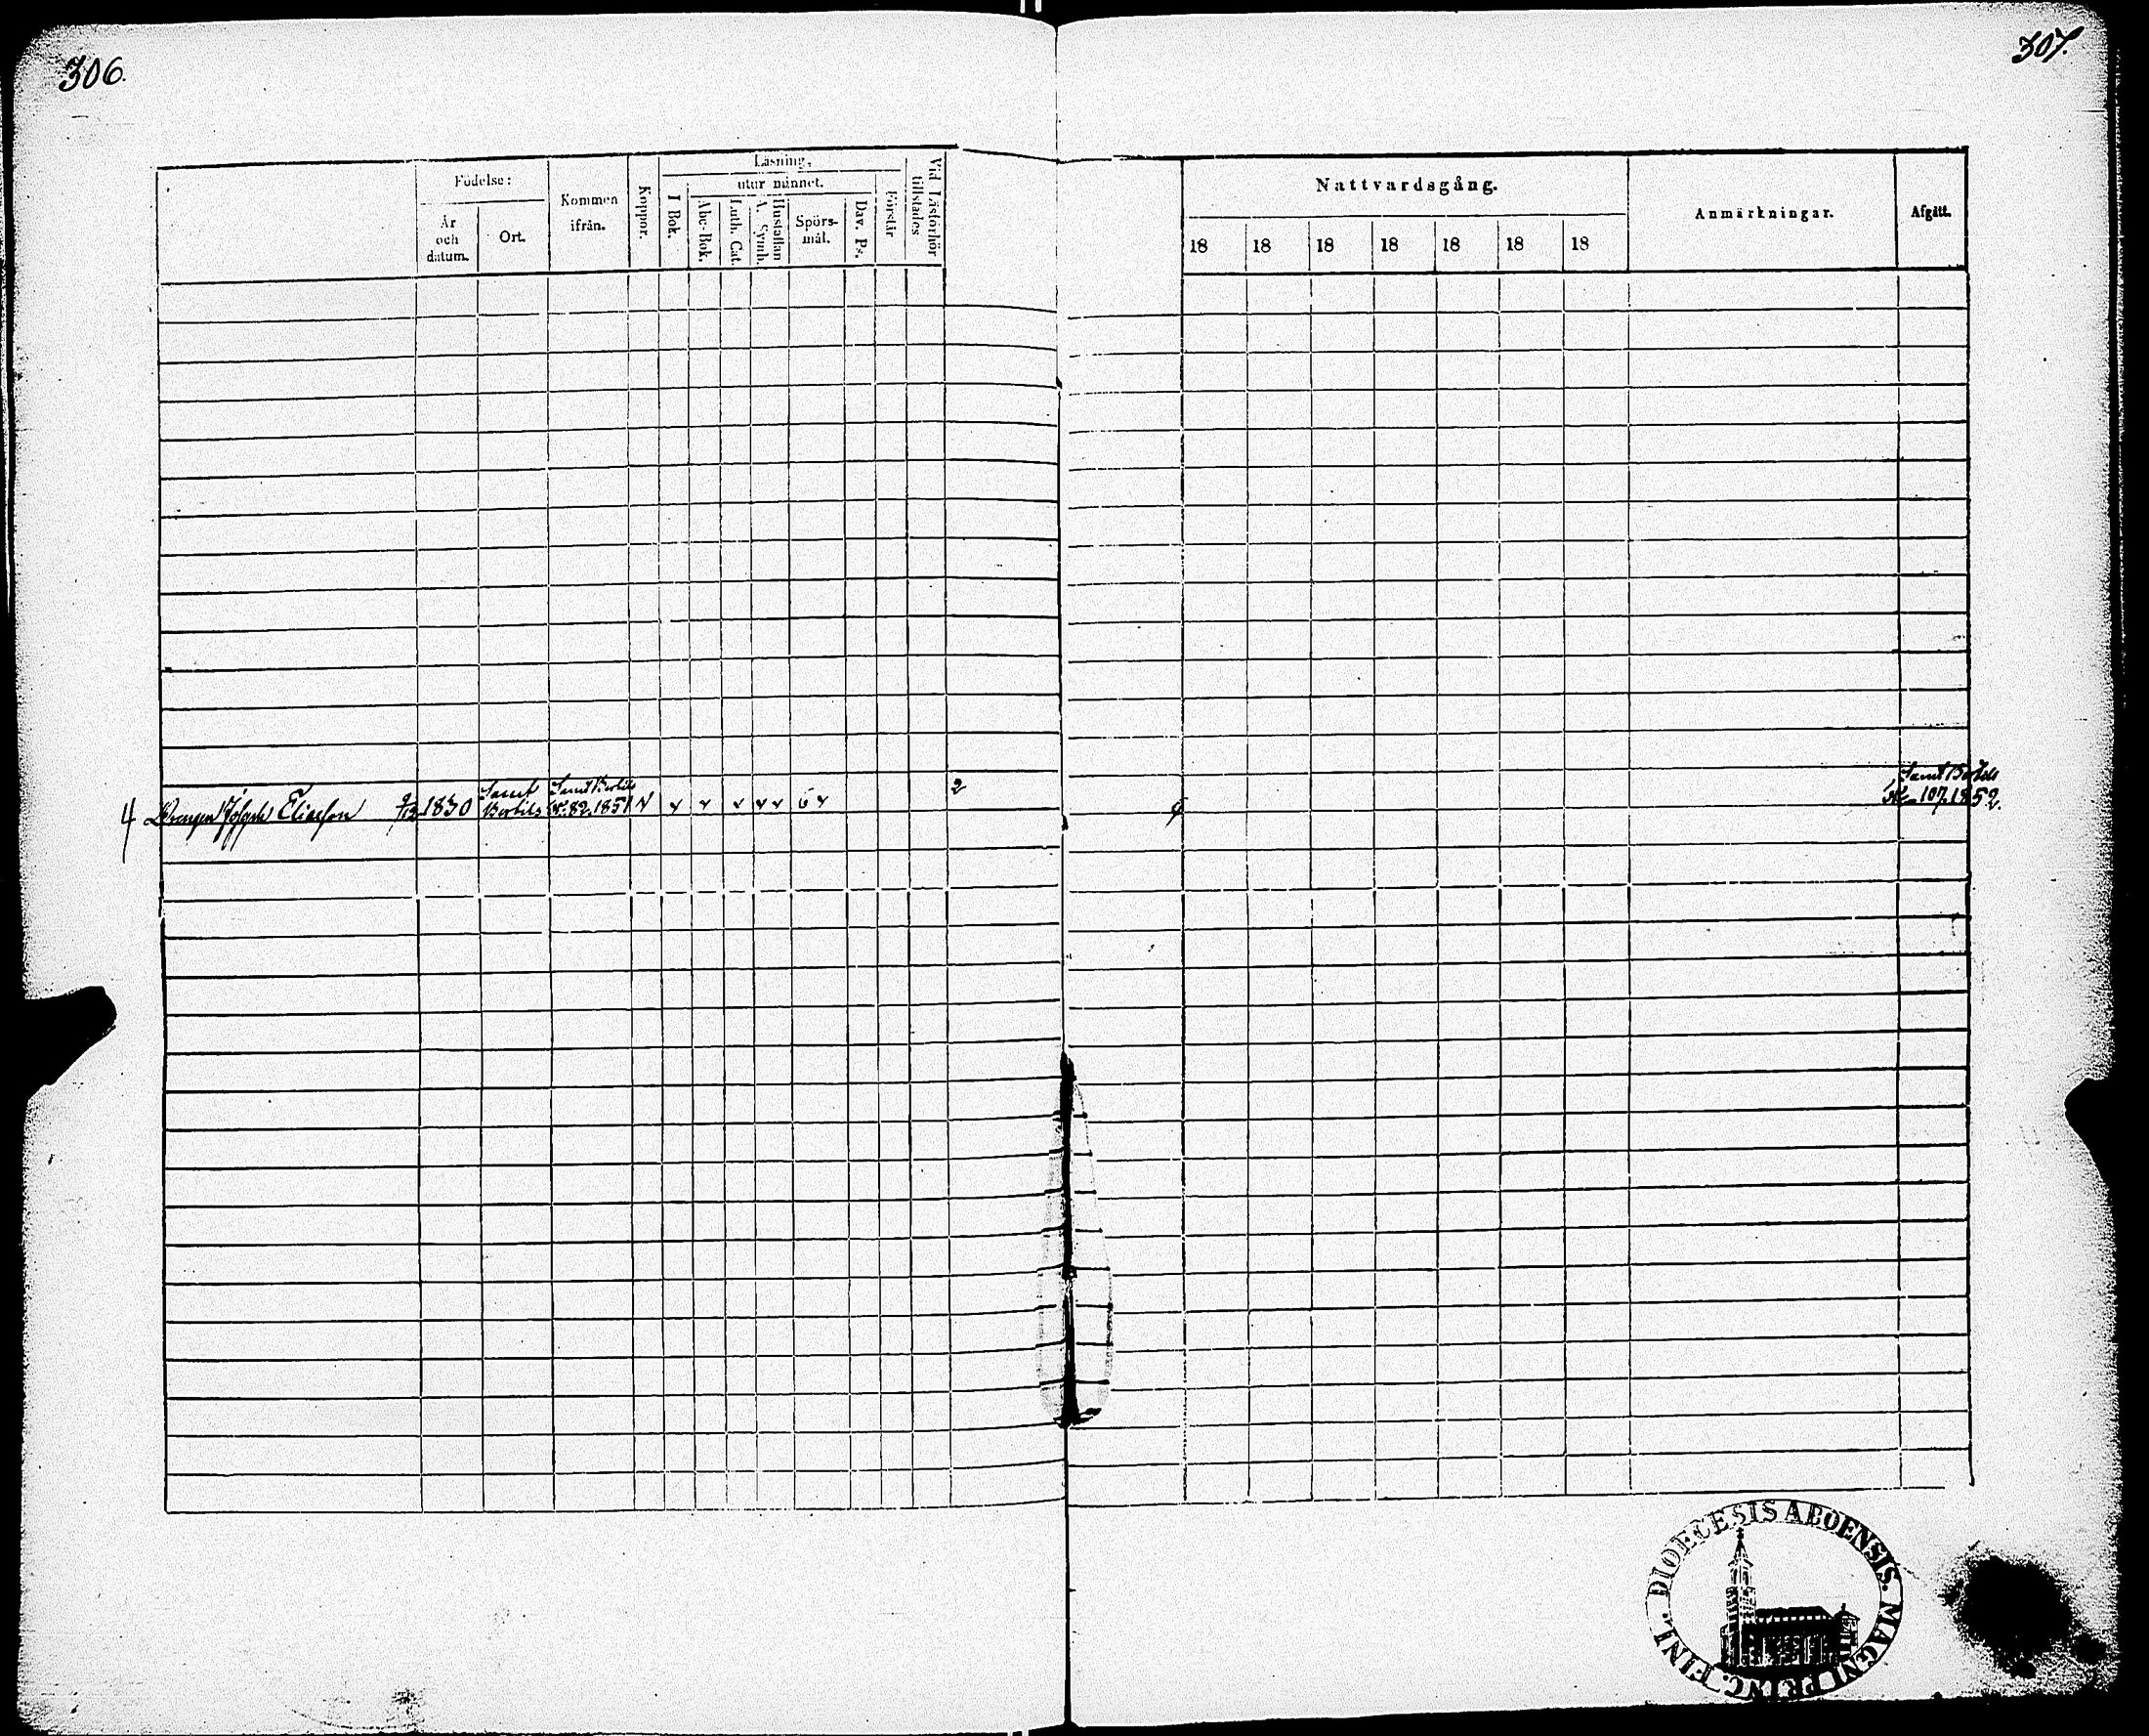 306.
307.
Födelse:
År och datum.
Ort.
Kommen ifrån.
Koppor.
Läsning,
I Bok.
utur minnet.
Abc-Bok.
Luth. Cat.
A. Symb. Hustaflan
Spörs-mål.
Dav. Ps.
Förstår
Vid Läsförhör tillstädes
Nattvardsgång.
18 18 18 18 18 18 18
Anmärkningar.
Afgått.
4 Drengen Joseph Eliasson 1830 Sanct Bertils Sanct Bertils 82. 1851 2
Sanct Bertils
107. 1852.
DIOECESIS ABOENSIS. MAGNI PRINC. FINL.